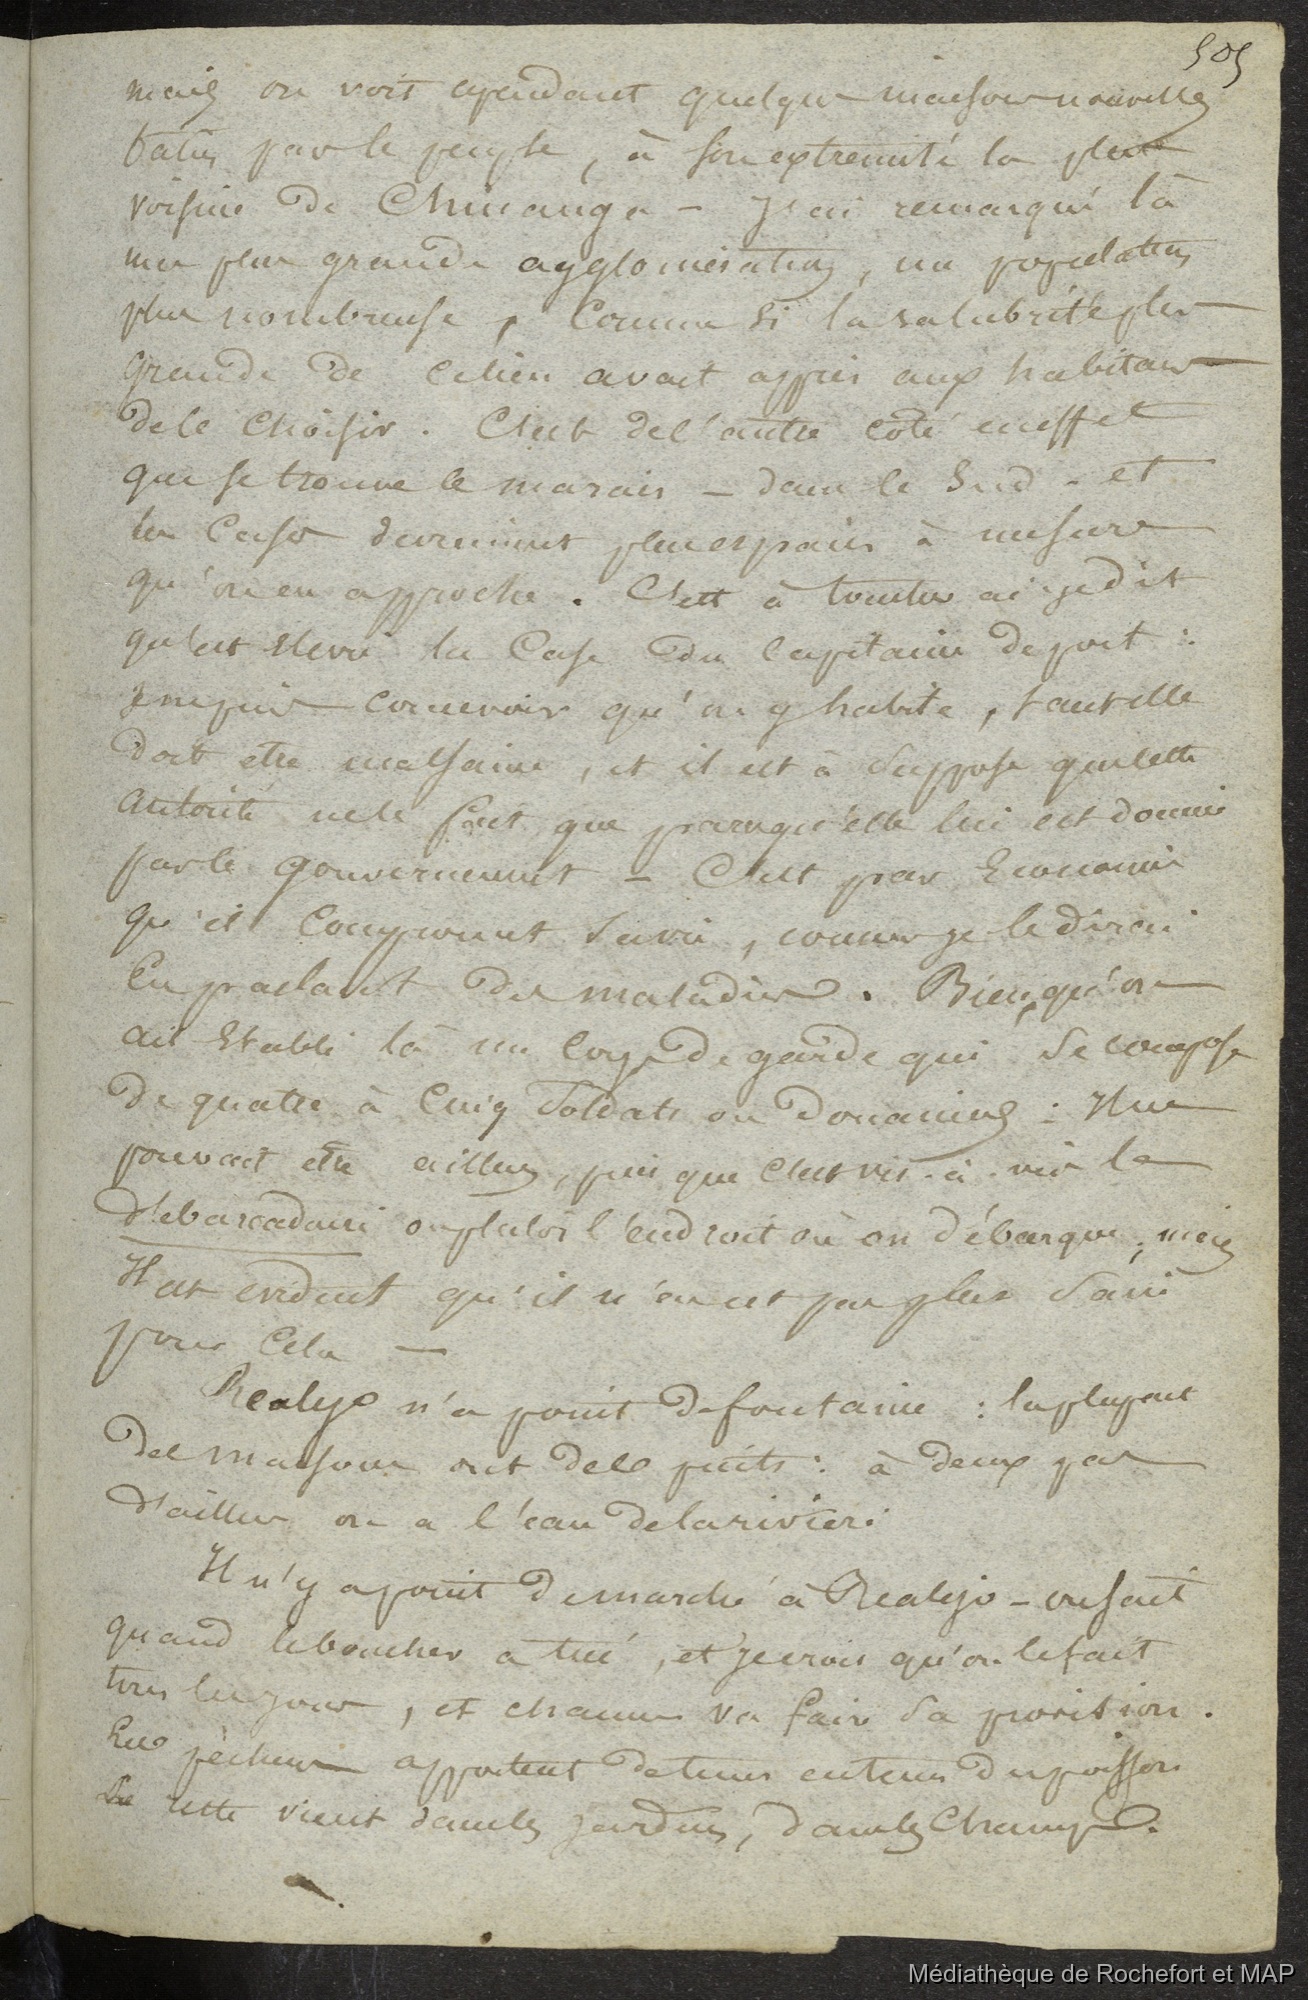 505
mais on voit cependant quelques maisons nouvelles
baties par le peuple, à son extremité la plus
voisine de Chinanga - J'ai remarqué là
une plus grande agglomération, une population
plus nombreuse, comme si la salubrité plus
grande de ce lieu avait appris aux habitans
de le choisir. C'est de l'autre coté en effet
que se trouve le marais - dans le Sud - et
les cases deviennent plus espacées à mesure
qu'on en approche. C'est à toucher ai-je dit
qu'est élevée la case du capitaine de port :
je ne puis concevoir qu'on y habite, tant elle
doit etre malsaine, et il est à supposer que cette
autorité ne le fait que parcequ'elle lui est donnée
par le gouvernement - C'est par économie
qu'il compromet sa vie, comme je le dirai
en parlant des maladies. Bien qu'on
ait établi là un corps de garde qui se compose
de quatre à cinq soldats ou douaniers : Il ne
pouvait etre ailleurs, puisque c'est vis-à-vis le
débarcadaire ou plutot l'endroit où on débarque ; mais
Il est evident qu'il n'en est pas plus sain
pour cela -
Realejo n'a point de fontaine : la plupart
des maisons ont des puits : à deux pas
d'ailleurs on a l'eau de la riviere.
Il n'y a point de marché à Realejo - on sait
quand le boucher a tué, et je crois qu'on le fait
tous les jours, et chacun va faire sa provision.
Les pêcheurs apportent de tems en tems du poisson
Le reste vient dans les jardins, dans les champs.
Médiathèque de Rochefort et MAP